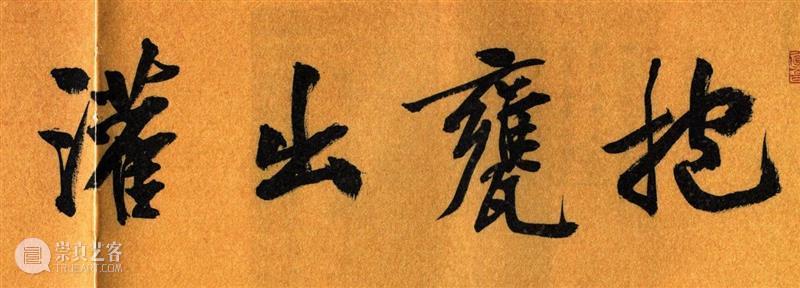 抱甕出灌
崇真艺客
TRUEART.COM